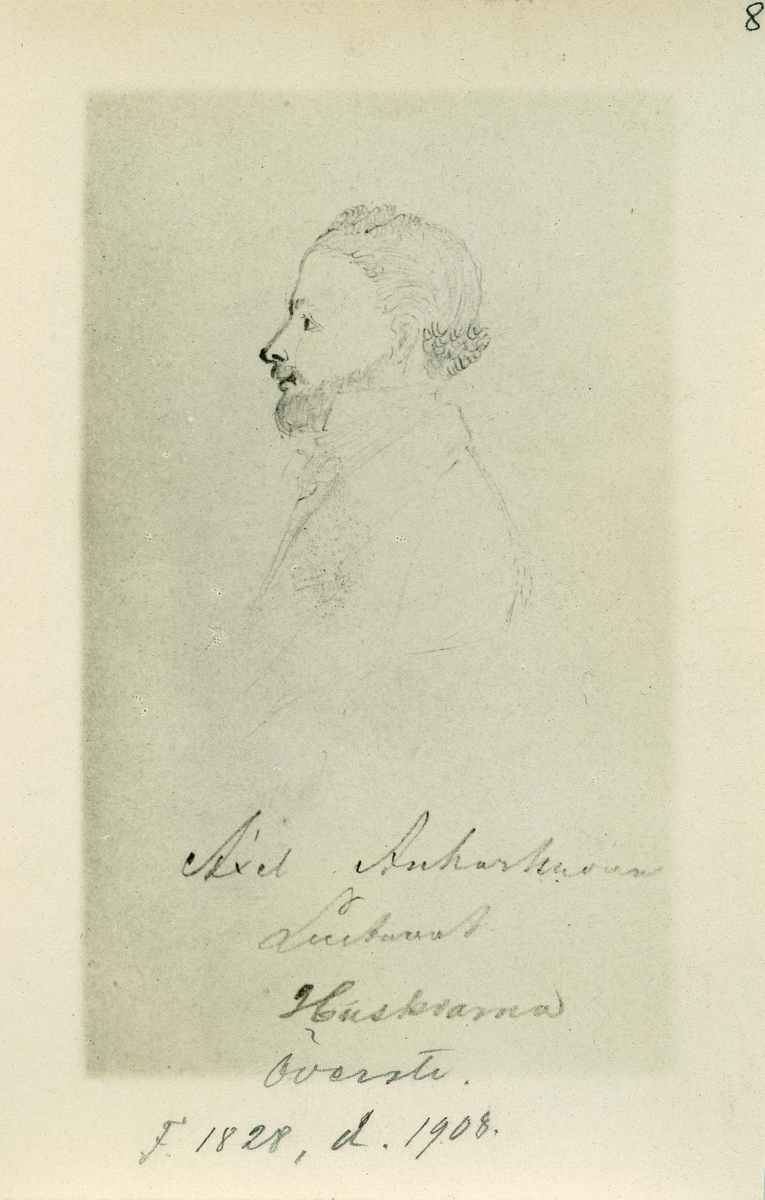 8
Axel Ankarkrona
Lieutenant
Huskvarna
Överste.
F. 1828, d. 1908.